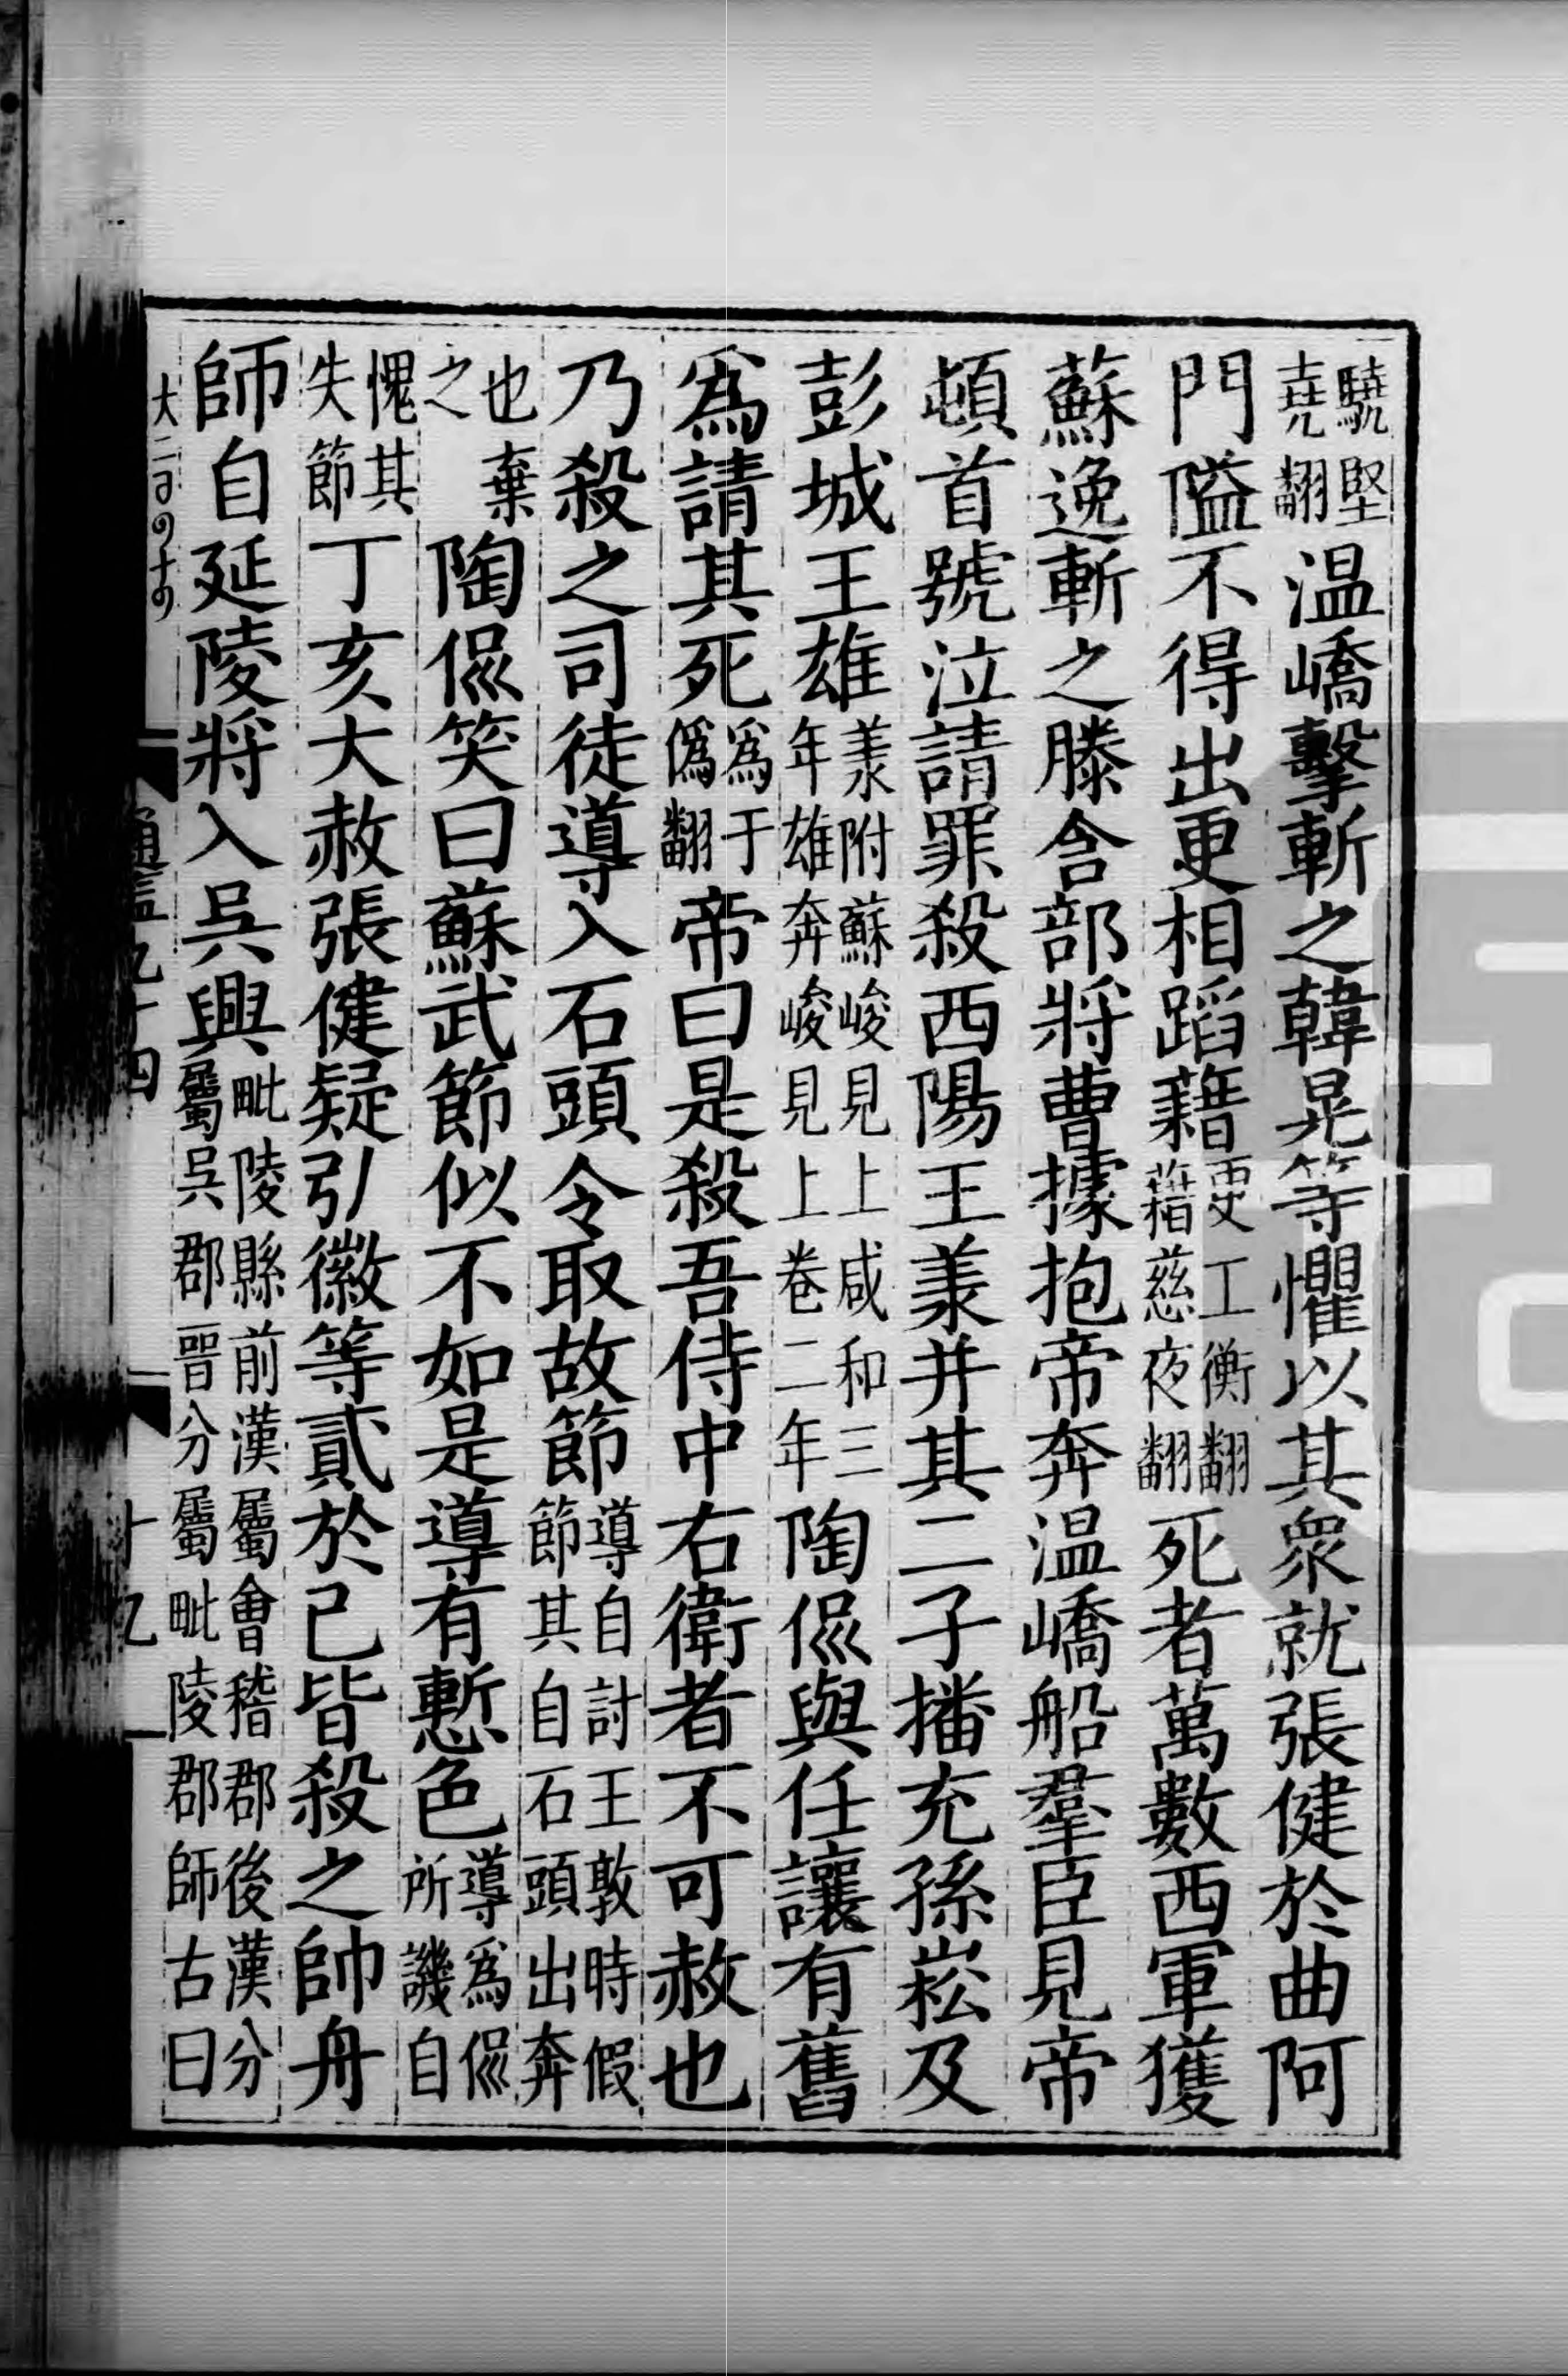 驍堅堯翻溫嶠擊斬之韓晃等懼以其衆就張健於曲阿
門隘不得出更相蹈藉更工衡翻藉慈夜翻死者萬數西軍獲
蘇逸斬之滕含部將曹據抱帝奔溫嶠船羣臣見帝
頓首號泣請罪殺西陽王羕并其二子播充孫崧及
彭城王雄羕附蘇峻見上咸和三年雄奔峻見上卷二年陶侃與任讓有舊
爲請其死爲于僞翻帝曰是殺吾侍中右衛者不可赦也
乃殺之司徒導入石頭令取故節導自討王敦時假節其自石頭出奔
也棄之陶侃笑曰蘇武節似不如是導有慙色導爲侃所譏自
愧其失節丁亥大赦張健疑引徽等貳於己皆殺之帥舟
師自延陵將入吳興毗陵縣前漢屬會稽郡後漢分屬吳郡晉分屬毗陵郡師古曰
通鑑九十四
十九